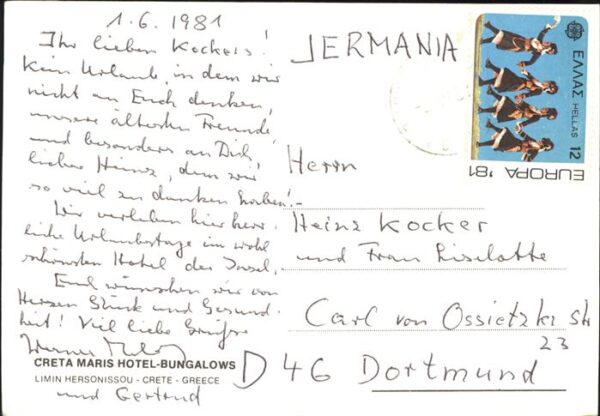 1.6.1981
Ihr lieben Kockers!
Kein Urlaub, in dem wir
nicht an Euch denken,
unsere ältesten Freunde
und besonders an Dich,
lieber Heinz, dem wir
so viel zu danken haben!-
Wir verleben hier herr-
liche Urlaubstage im wohl
schönsten Hotel der Insel.
Euch wünschen wir von
Herzen Glück und Gesund-
heit! Viel liebe Grüsse
Werner
und Gertrud
CRETA MARIS HOTEL-BUNGALOWS
LIMIN HERSONISSOU - CRETE - GREECE
JERMANIA
Herrn
Heinz Kocker
und Frau Liselotte
Carl von Ossietzki Str
23
D 46 Dortmund
ΕΛΛΑΣ HELLAS 12
EUROPA '81